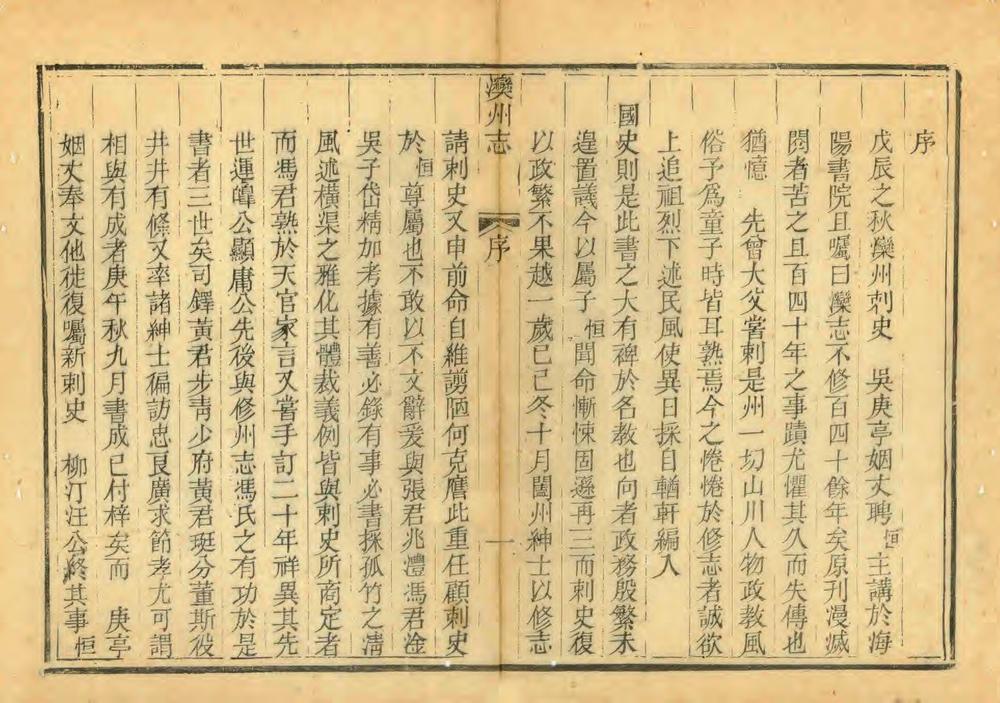 序
戊辰之秋灤州刺史　吳庚亭姻丈聘恒主講於海
陽書院且囑曰灤志不修百四十餘年矣原刊漫滅
閱者苦之且百四十年之事蹟尤懼其久而失傳也
猶憶　先曾大父嘗刺是州一切山川人物政教風
俗予爲童子時皆耳熟焉今之惓惓於修志者誠欲
上追祖烈下述民風使異日採自輶軒編入
國史則是此書之大有裨於名教也向者政務殷繁未
遑置議今以屬子恒聞命慚悚固遜再三而刺史復
以政繁不果越一歲己巳冬十月闔州紳士以修志
灤州志　序　一
請刺史又申前命自維謭陋何克膺此重任顧刺史
於恒尊屬也不敢以不文辭爰與張君兆澧馮君淦
吳子岱精加考據有善必錄有事必書探孤竹之淸
風述橫渠之雅化其體裁義例皆與刺史所商定者
而馮君熟於天官家言又嘗手訂二十年祥異其先
世運皥公顯庸公先後與修州志馮氏之有功於是
書者三世矣司鐸黃君步靑少府黃君珽分董斯役
井井有條又率諸紳士徧訪忠良廣求節孝尤可謂
相與有成者庚午秋九月書成已付梓矣而　庚亭
姻丈奉文他徙復囑新刺史　柳汀汪公終其事恒